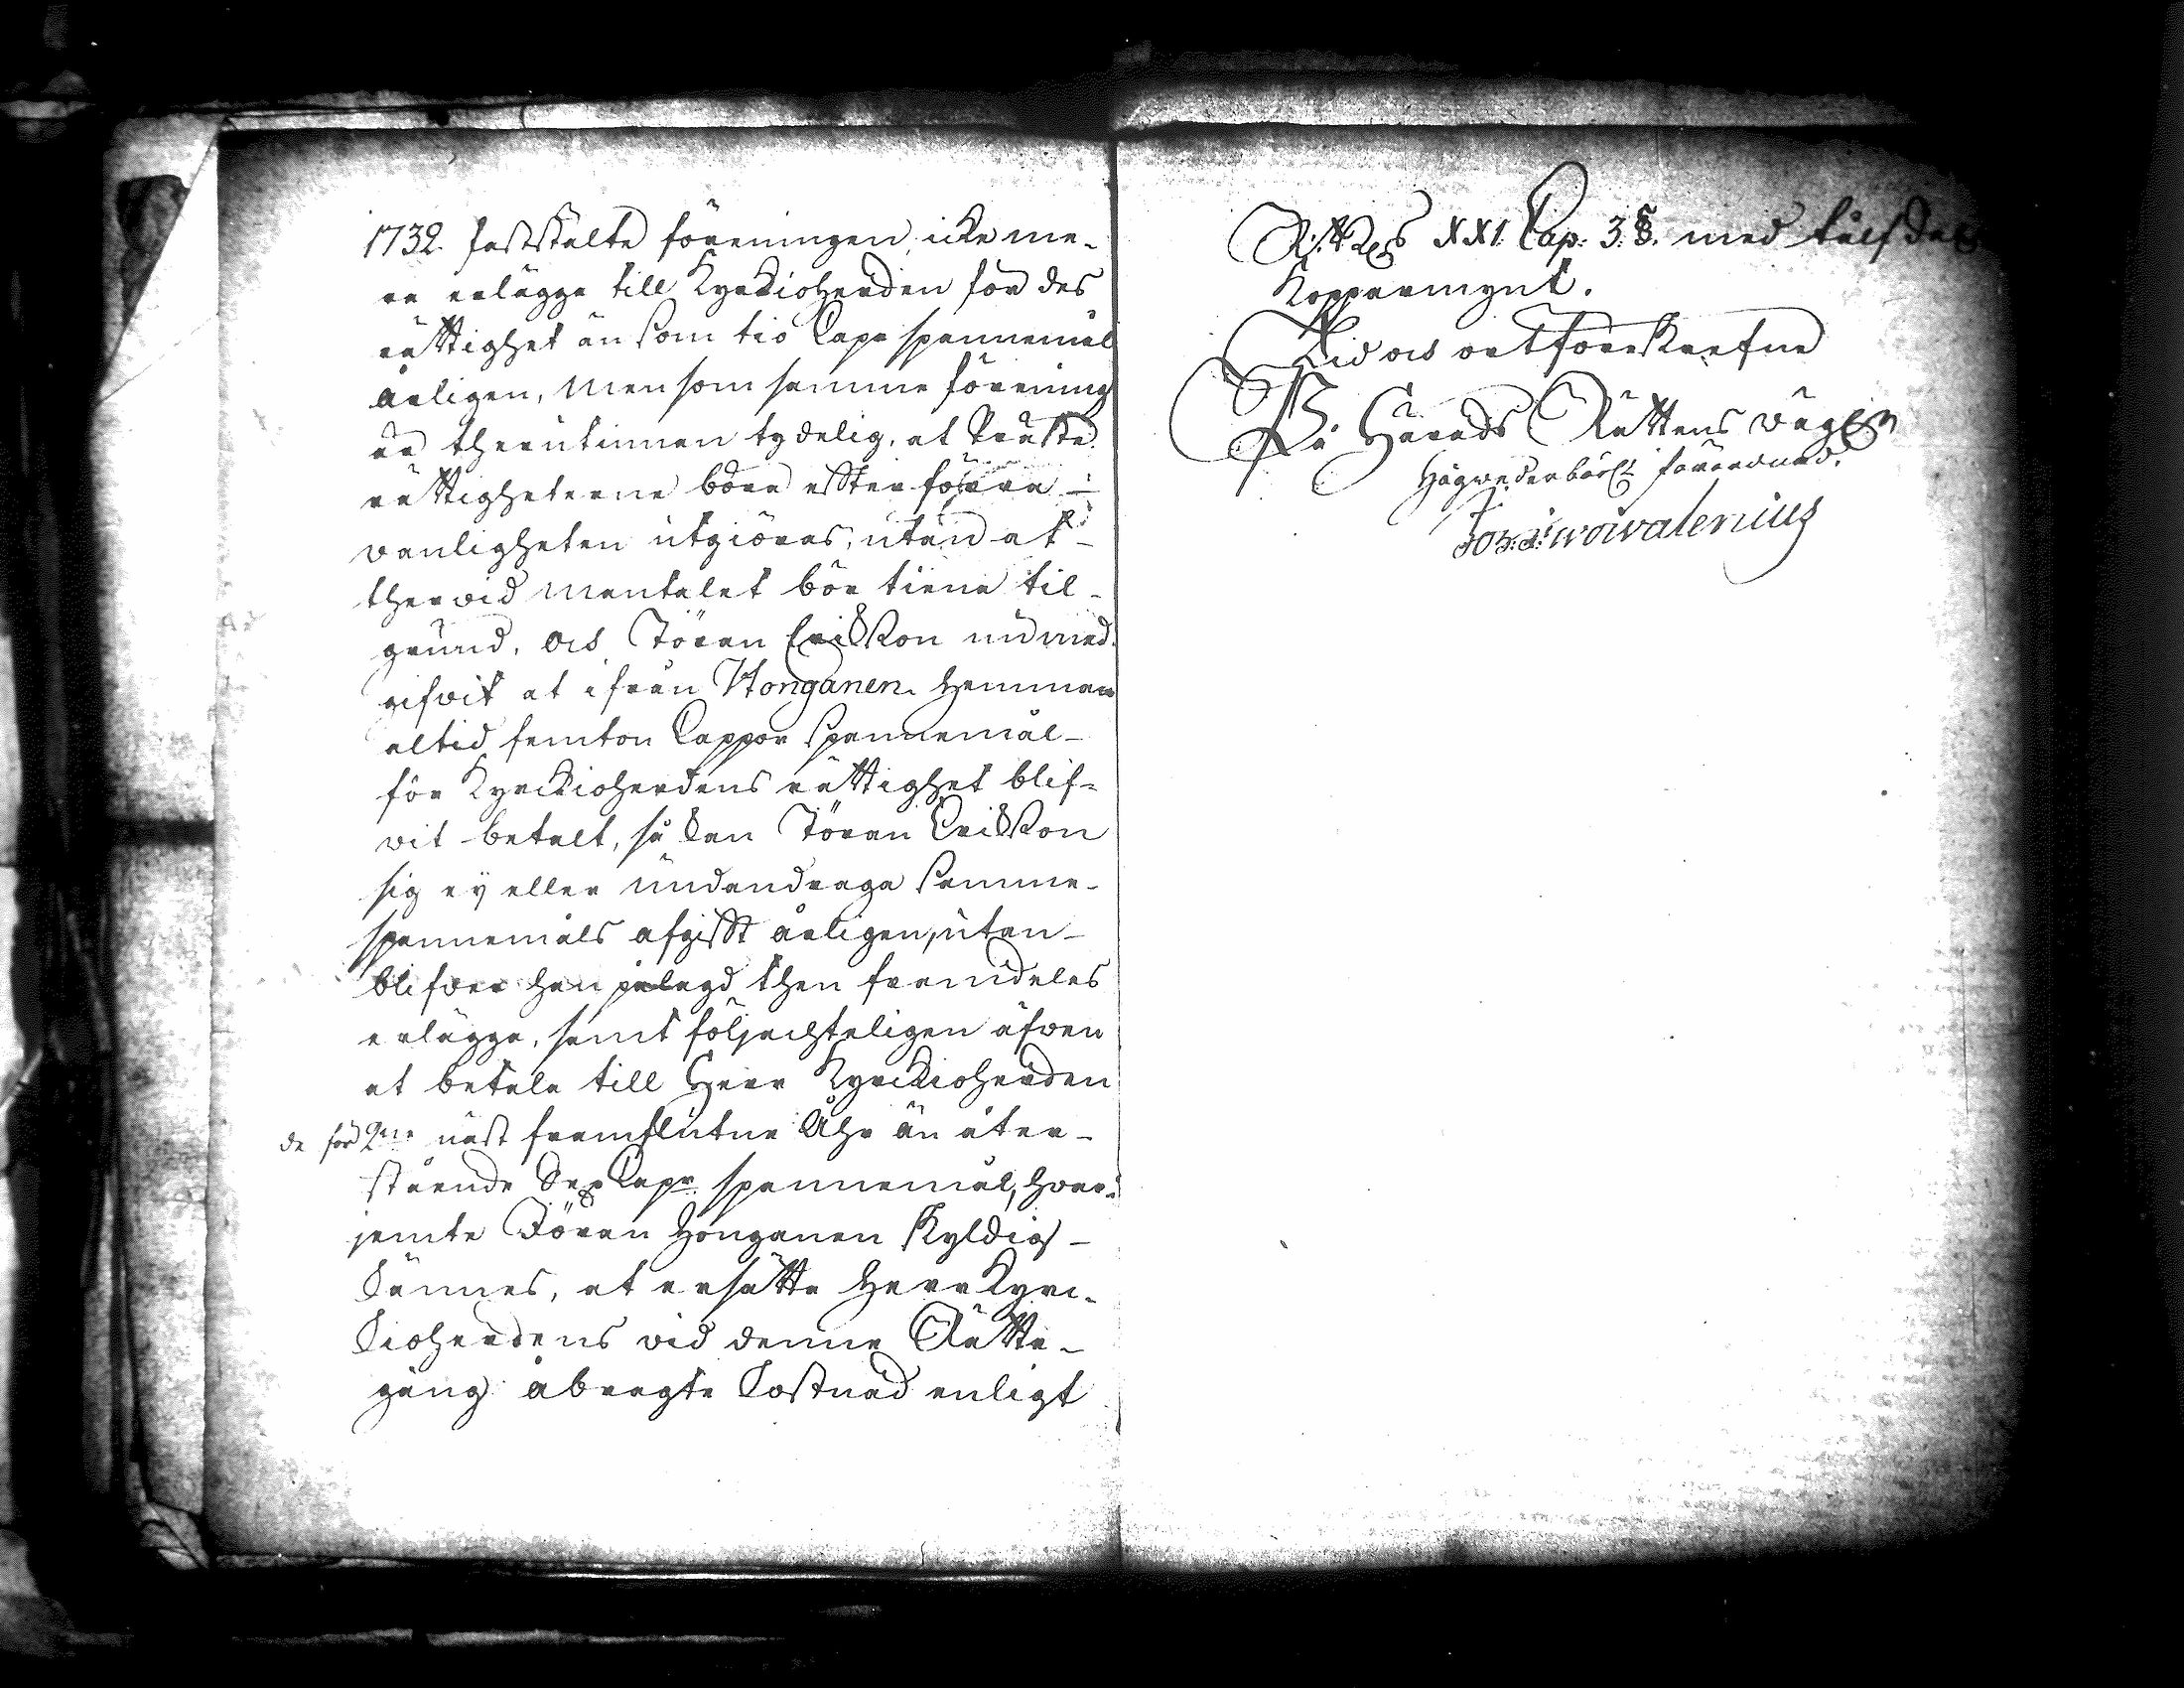 1732. faststälte föreningen icke me-
ra erlägga till Kyrckioherden för des
rättighet än som tio Capr spannemål
årligen, men som samma förening
är therutinnan tydelig, at Präste
rättigheterne böra efter förra
vanligheten utgiöras, utan at
thervid mantalet bör tiena til
grund, och Jöran Ericksson nu med-
gifvit at ifrån Honganen hemman
altid femton Cappor spannemål
för Kyrckioherdens rättighet blif-
vit betalt, så kan Jöran Ericksson
sig ey eller undandraga samma
spannemåls afgifft årligen, utan
blifver han pålagd then framdeles
erlägga, samt följachteligen äfven
at betala till Herr Kyrckioherden
de för 2ne näst framflutne Åhr än åter-
stående Sex Capr spannemål, hvar-
jemte Jöran Honganen skyldig
kännes, at ersätta Herr Kyrc-
kioherdens vid denna Rätte-
gång åbragte kostnad enligt
R:B: XXI. Cap: 3. §. med tolf dal
Koppermynt.
Tid och ort föreskrefne
På Härads Rättens vägn
Högvederbörl: förordnad.
Joh: J: woivalenius